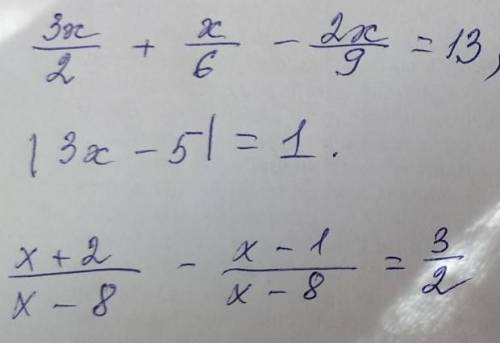 3x/2 + x/6 - 2x/9 = 13,
|3x - 5| = 1.
(x + 2)/(x - 8) - (x - 1)/(x - 8) = 3/2